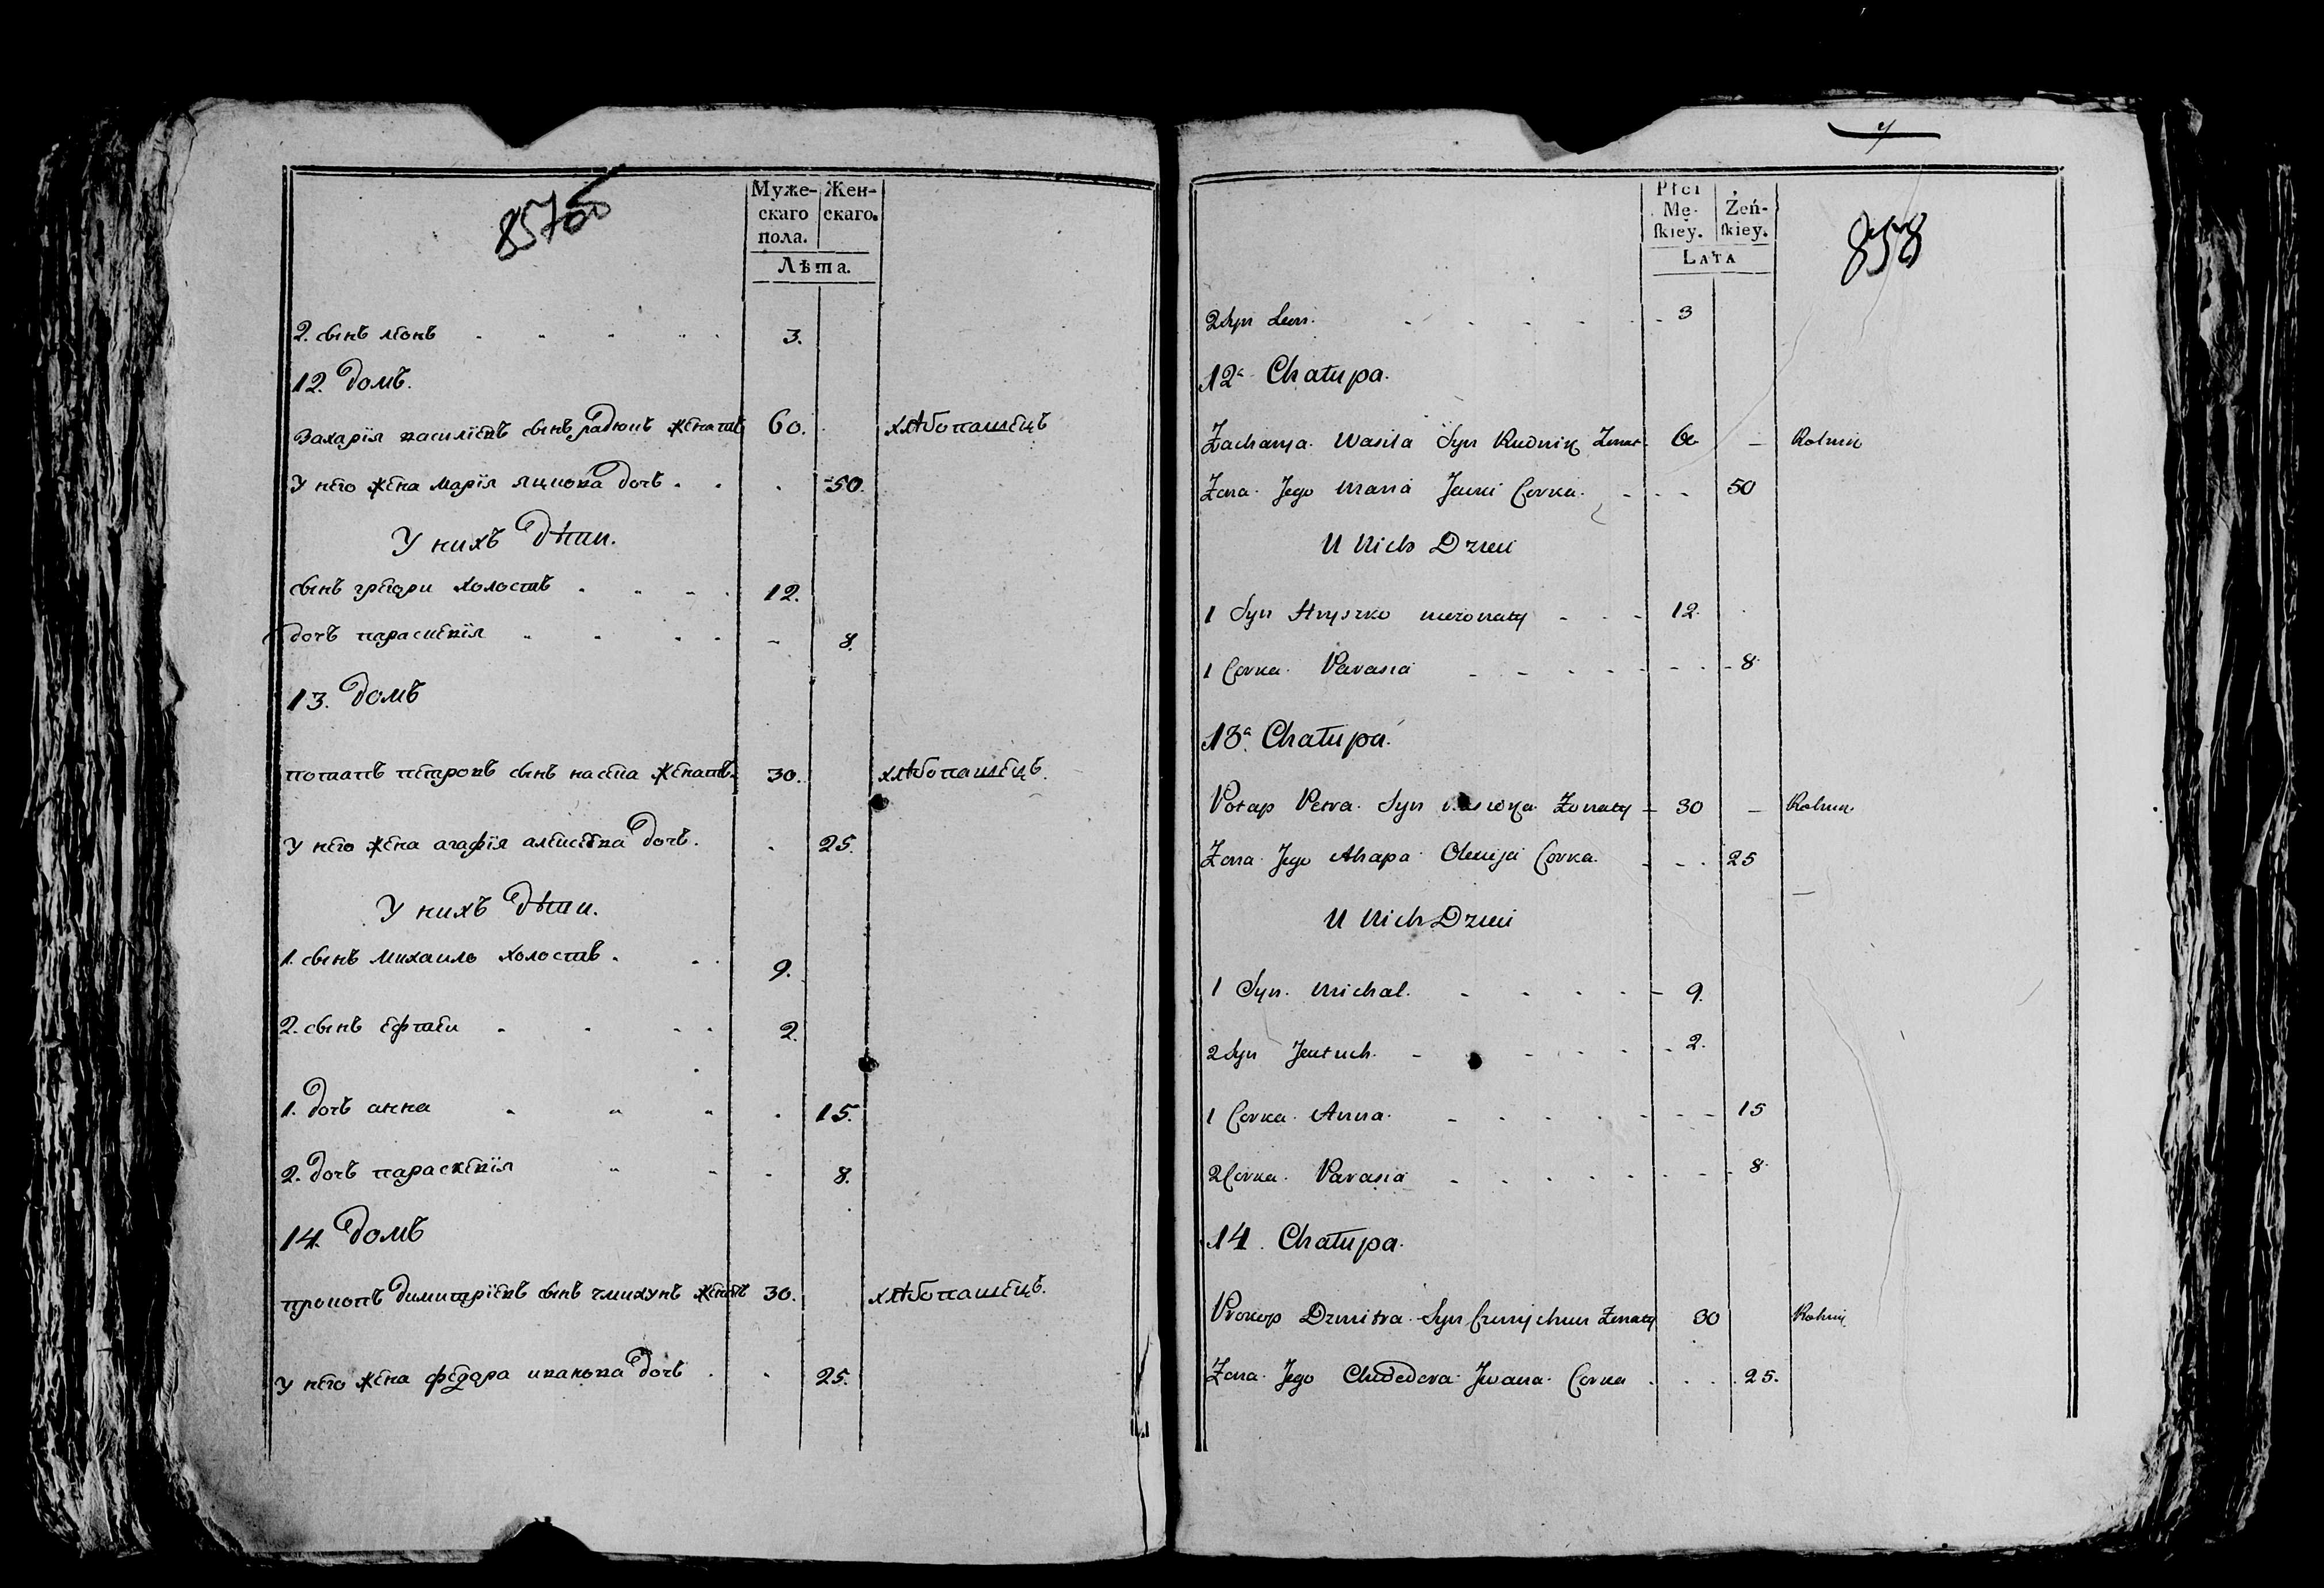 857об
Муже- Жен-
скаго скаго.
пола.
Лѣта.
2. сынъ леонъ 3.
12. домъ.
Захарїя василїевъ сынъ женатъ 60. хлѣбопашецъ
У него жена марїя яцкова дочъ 50.
У нихъ дѣти.
сынъ грегори холостъ 12.
дочъ параскевїя 8.
13. домъ
потапъ петровъ сынъ женатъ 30. хлѣбопашецъ.
У него жена агафїя алексѣева дочъ. 25.
У нихъ дѣти.
1. сынъ михаилъ холостъ 9.
2. сынъ ефтеи 2.
1. дочъ анна 15.
2. дочъ параскевїя 8.
14. домъ
прокопъ димитрїевъ сынъ чмихунъ женатъ 30. хлѣбопашецъ.
У него жена федора иванова дочъ 25.
Płci
Mę- Żeń-
ſkiey. ſkiey.
LATA
858
2 Syn Leon. 3
12a Chałupa.
Zacharya Wasila Syn Rudnik Żonat 60 Rolnik
Zona Jego Maria Jacki Corka 50
U Nich Dzieci
1 Syn Hryszko niezonaty 12
1 Corka Parasia 8
13a Chałupa.
Potap Petra Syn Zonaty 30 Rolnik
Zona Jego Ahapa Olexija Corka. 25
U Nich Dzieci
1 Syn. Michał. 9.
2 Syn Jeutuch. 2.
1 Corka Anna. 15
2 Corka Parasia 8
14. Chałupa.
Prokop Dzmitra Syn Czmychun Zonaty 30 Rolnik
Zona Jego Chwedora Jwana Corka 25.